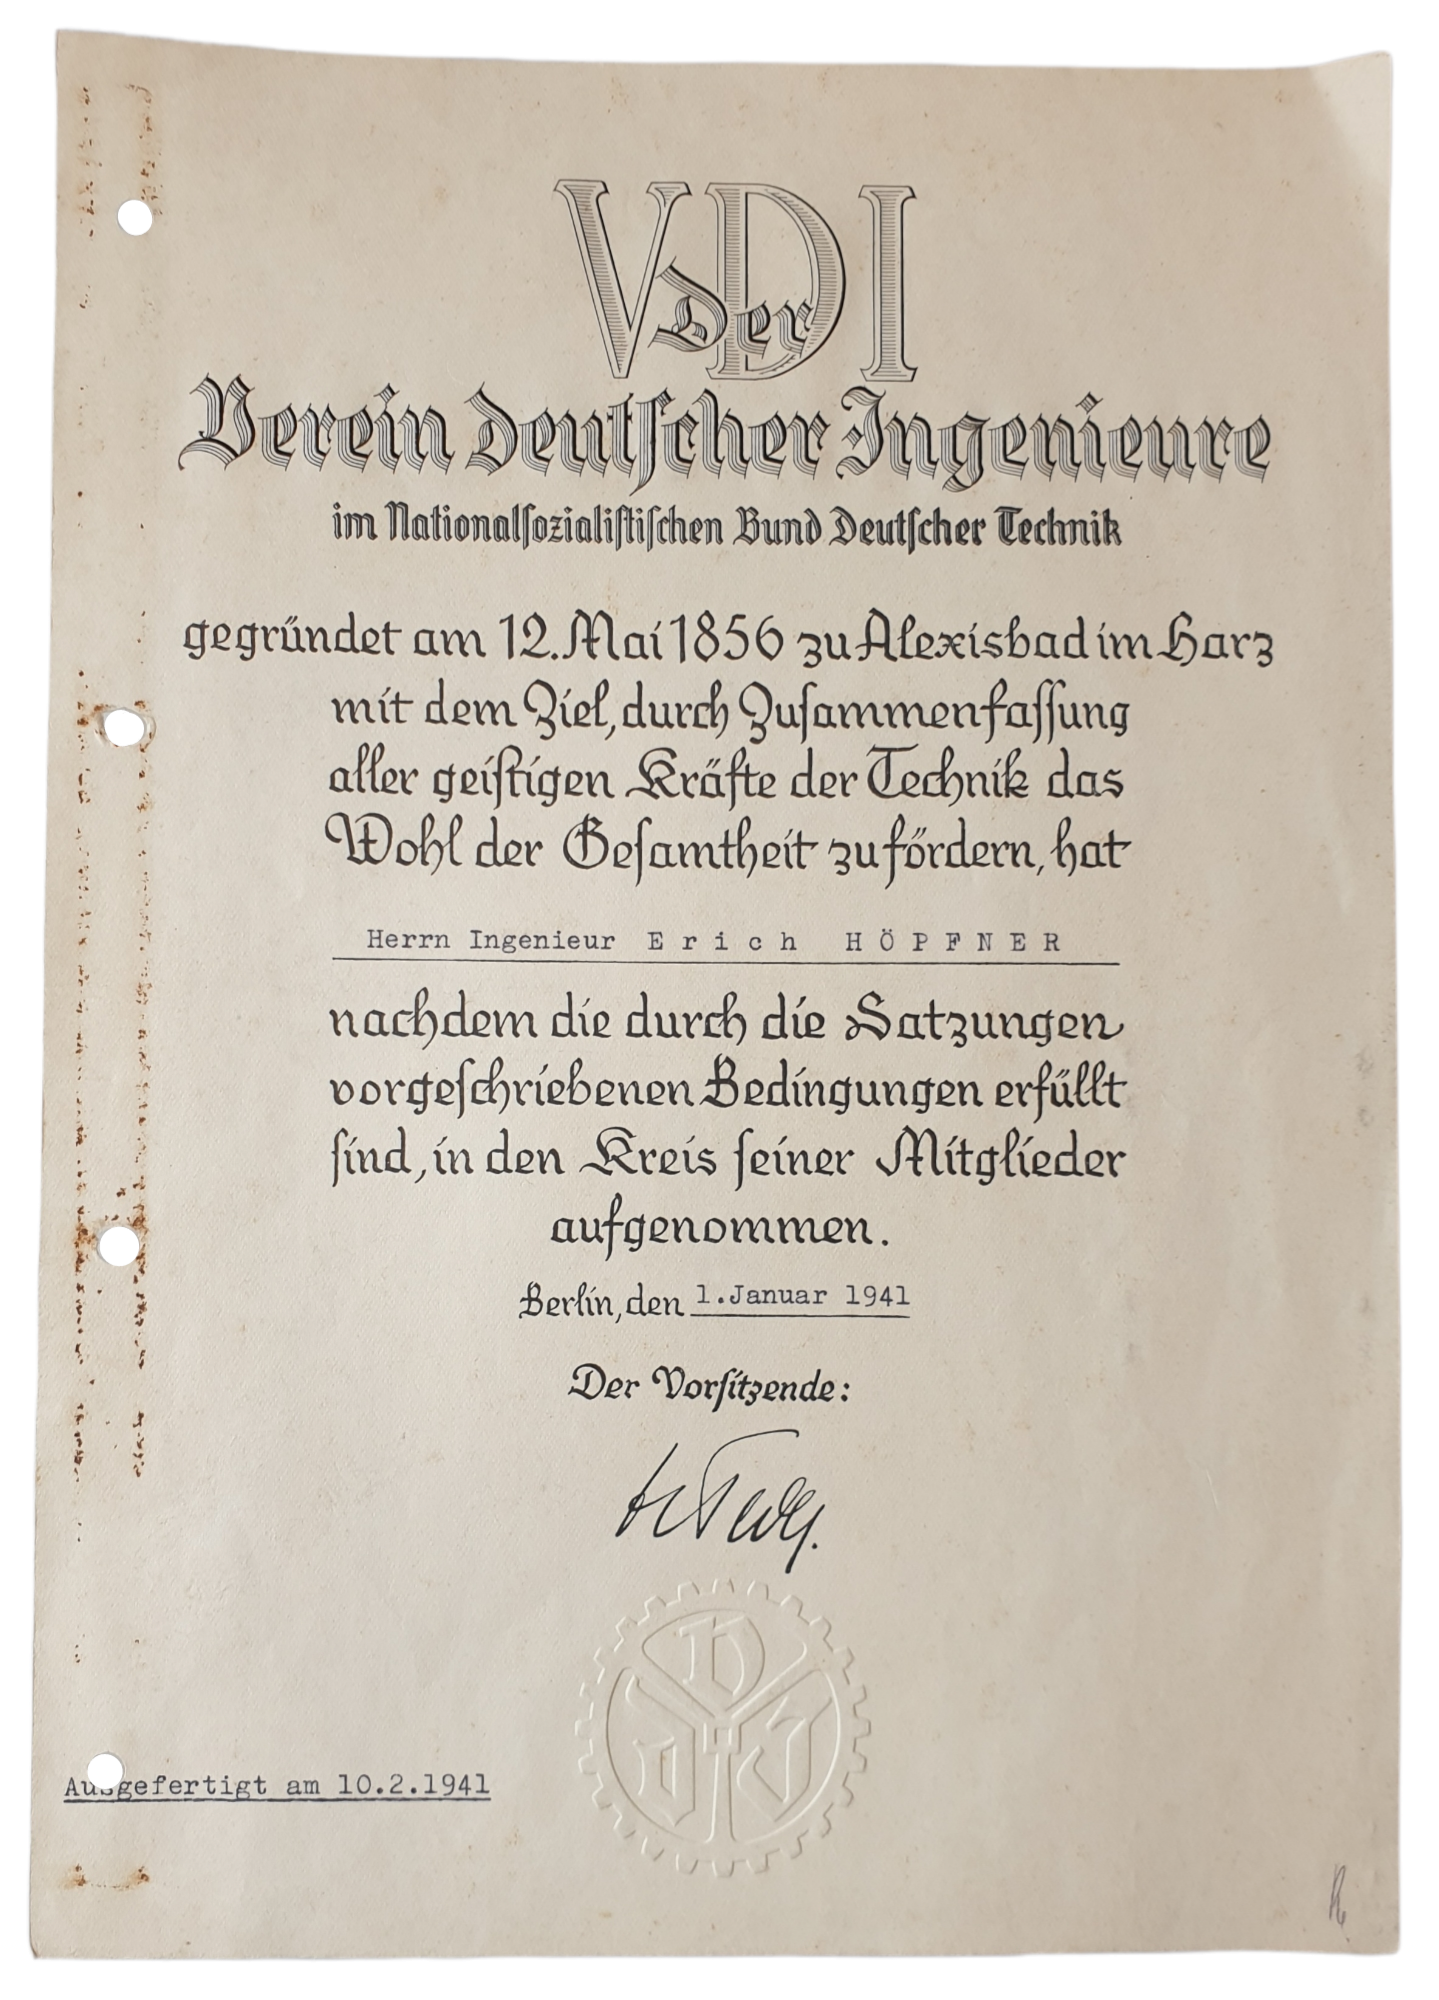 VDI
Der
Verein Deutscher Ingenieure
im Nationalsozialistischen Bund Deutscher Technik
gegründet am 12. Mai 1856 zu Alexisbad im Harz
mit dem Ziel, durch Zusammenfassung
aller geistigen Kräfte der Technik das
Wohl der Gesamtheit zu fördern, hat
Herrn Ingenieur Erich HÖPFNER
nachdem die durch die Satzungen
vorgeschriebenen Bedingungen erfüllt
sind, in den Kreis seiner Mitglieder
aufgenommen.
Berlin, den 1.Januar 1941
Der Vorsitzende:
VDI
Ausgefertigt am 10.2.1941